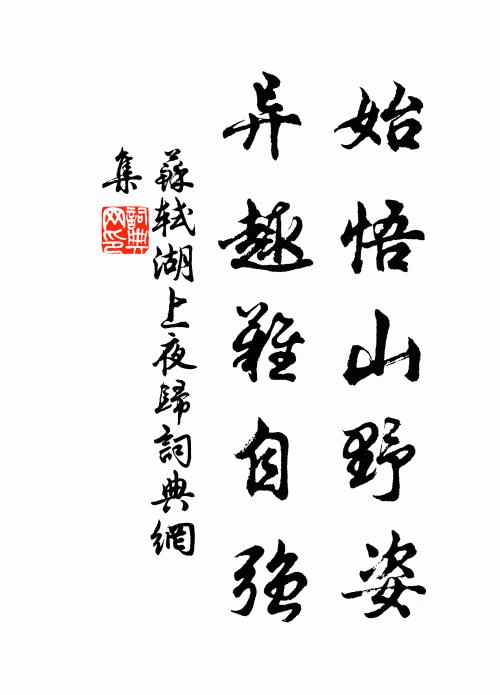 始悟山野姿
异趣難自强
蘇軾湖上夜歸詞典網
集
詞典
网印